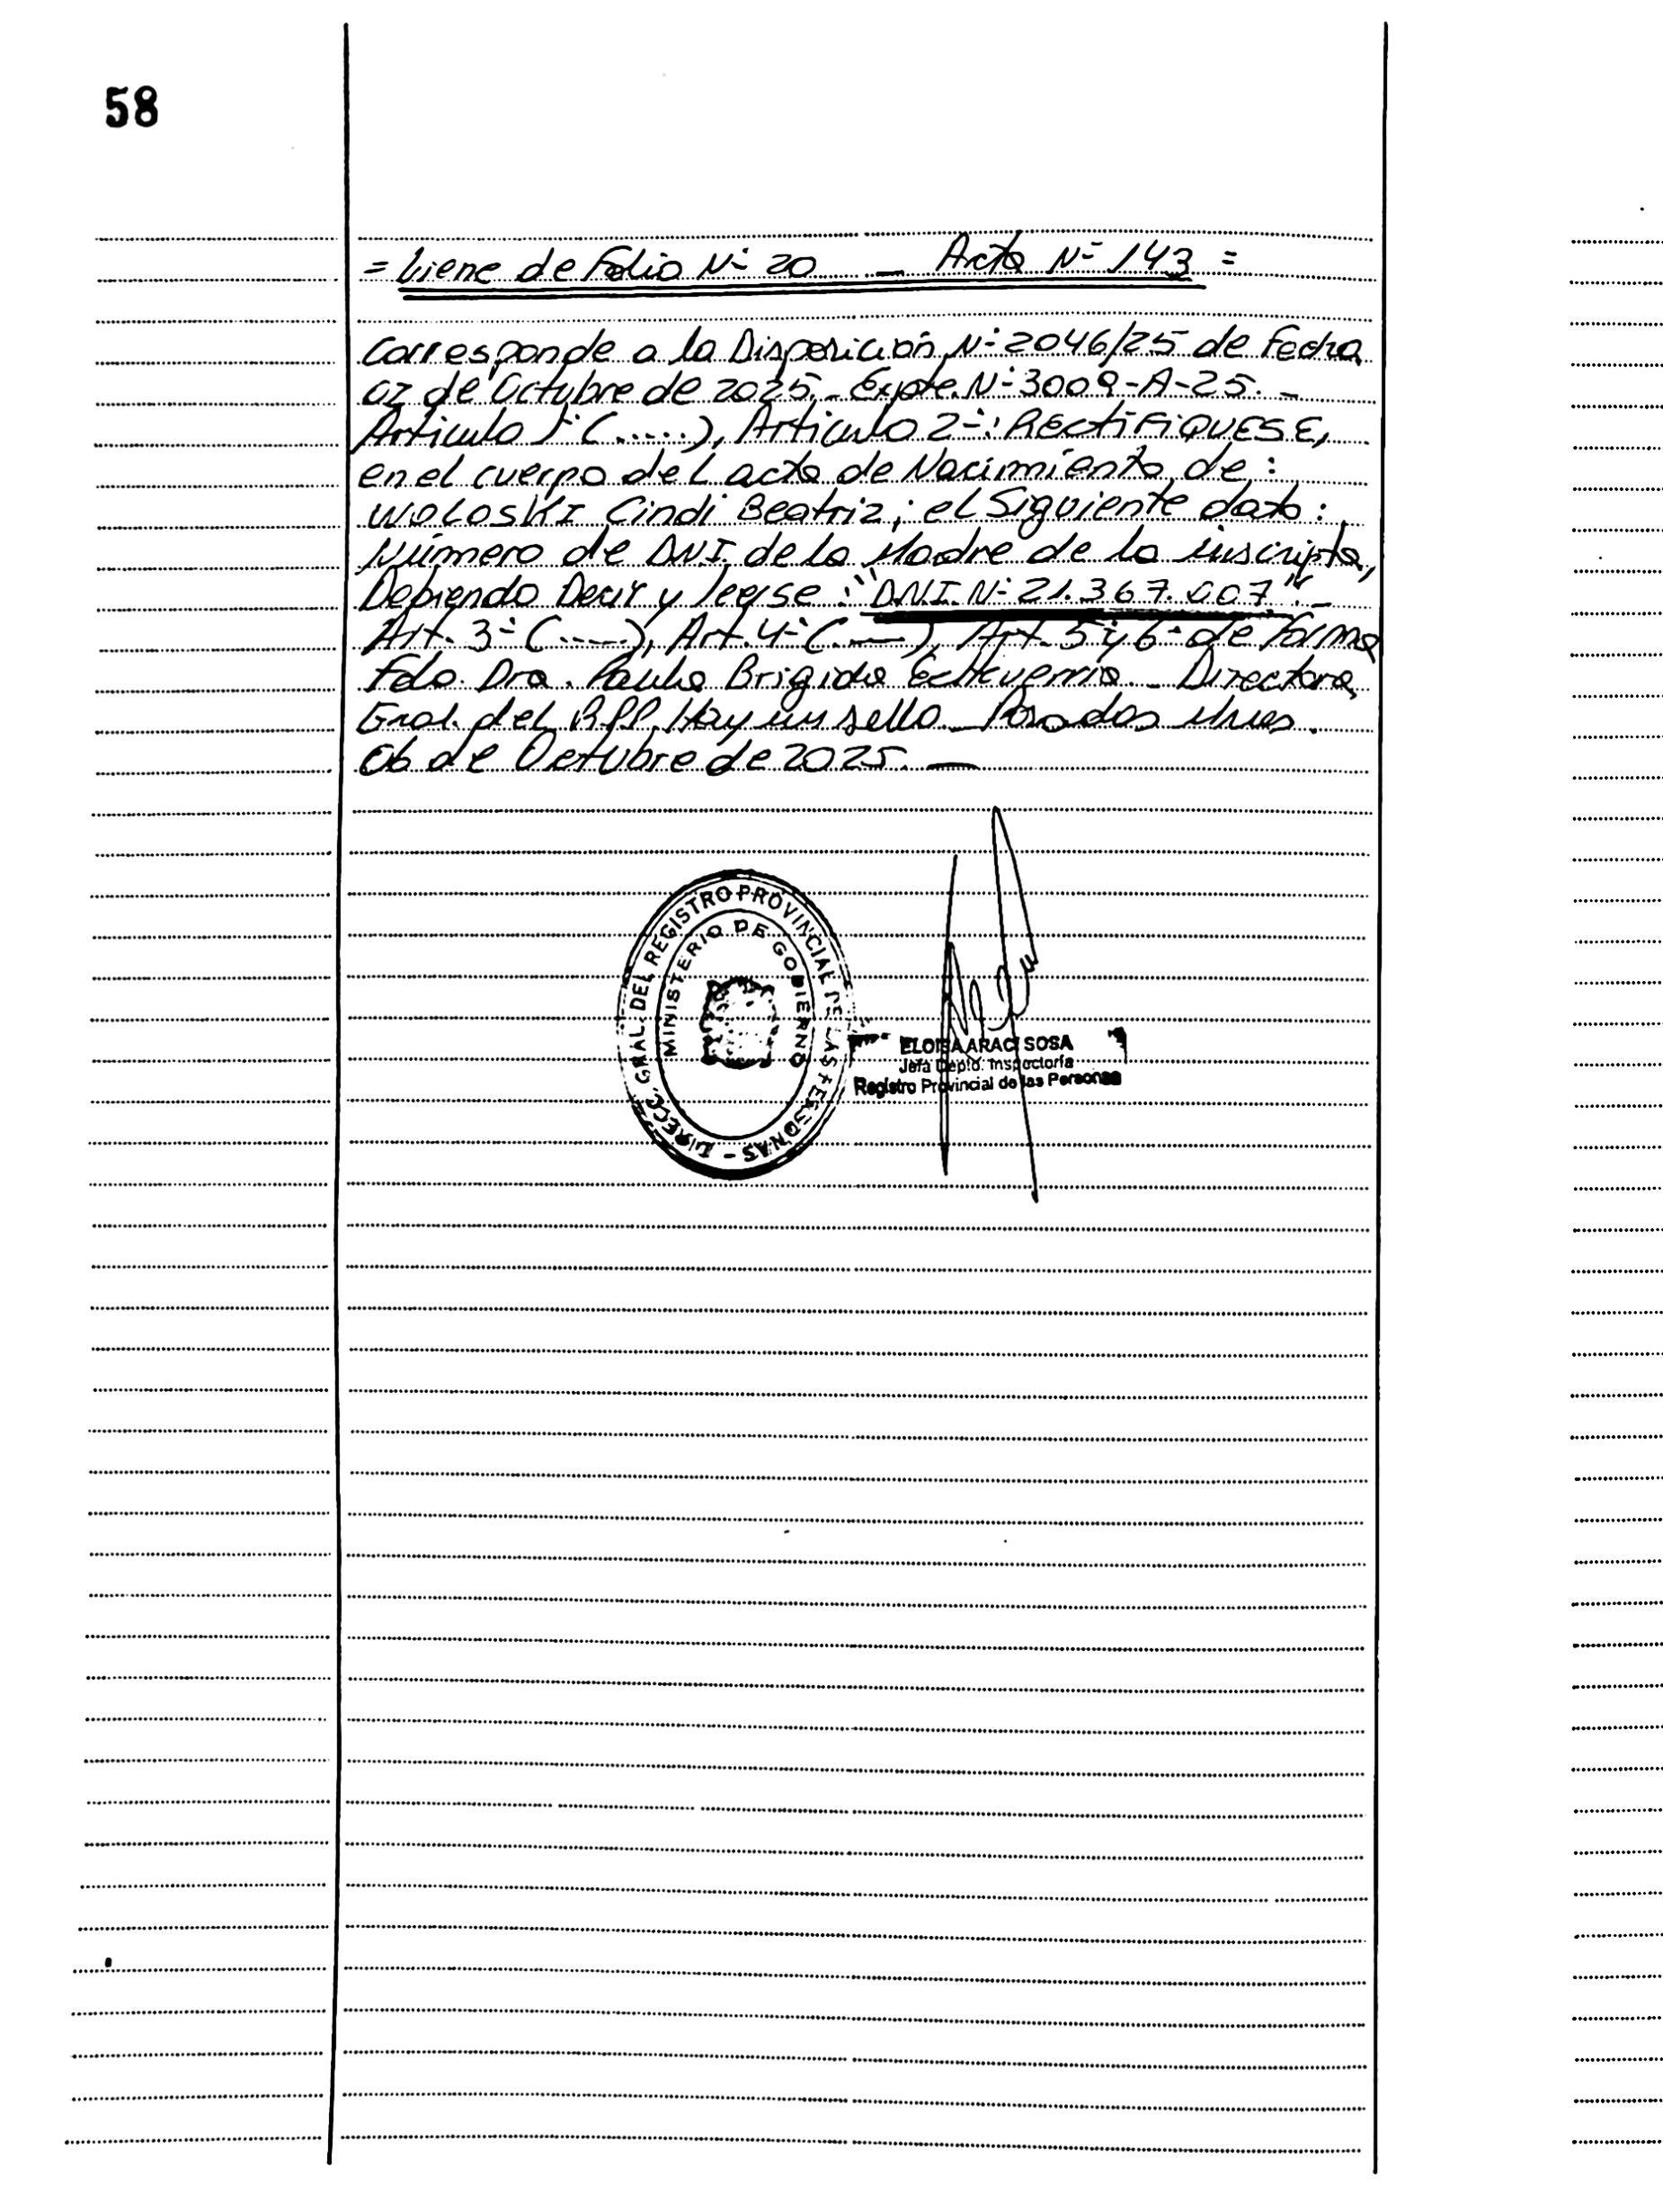 58
= Viene de Folio Nº 20 _ Acta Nº 143 =
Corresponde a la Disposición Nº 2046/25 de Fecha
02 de Octubre de 2025._ Expte. Nº 3009-A-25._
Articulo 1º (.....), Articulo 2º: RECTIFIQUESE,
en el cuerpo del acta de Nacimiento de:
WOLOSKI Cindi Beatriz; el Siguiente dato:
Número de DNI. de la Madre de la inscripta,
Debiendo Decir y leerse: "D.N.I. Nº 21.367.007"._
Art. 3º (.....), Art. 4º (.—), Art. 5 y 6º de Forma
Fdo. Dra. Paula Brigida Echeverria._ Directora
Gral. del RPP. Hay un sello_ Posadas Mnes.
06 de Octubre de 2025. —
DIRECC. GRAL. DEL REGISTRO PROVINCIAL DE LAS PERSONAS -
MINISTERIO DE GOBIERNO
ELOISA ARACI SOSA
Jefa Depto. Inspectoría
Registro Provincial de las Personas